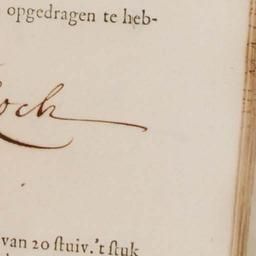 opgedragen te heb-
och
van 20 ſtuiv.'t ſtuk